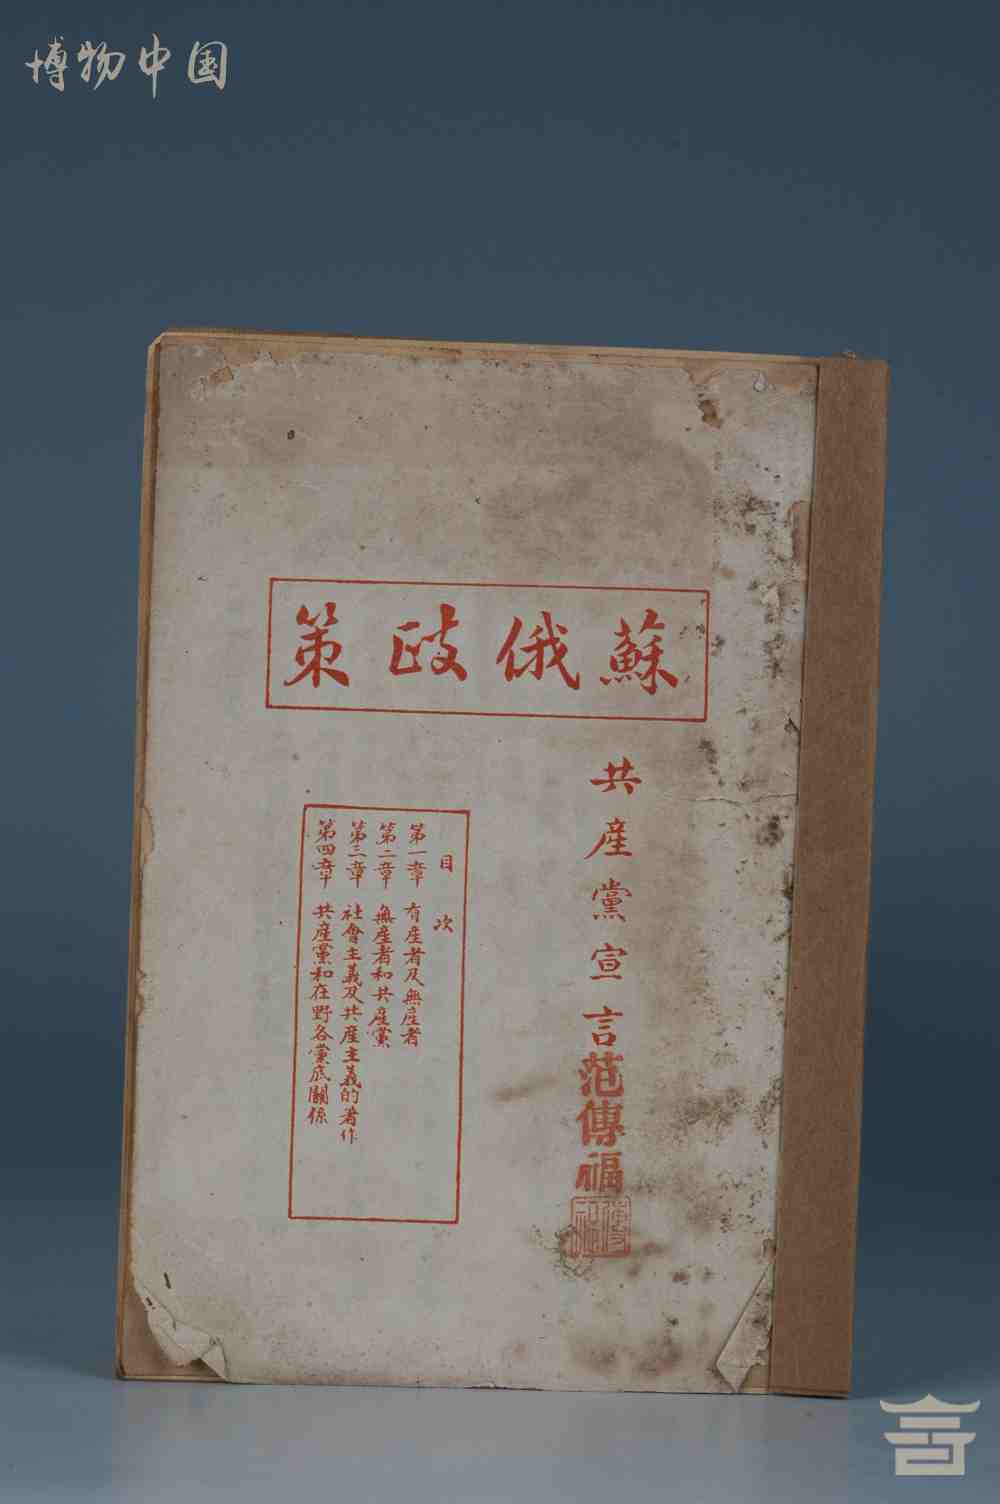 博物中国
蘇俄政策
共產黨宣言
范傳福
目次
第一章 有產者及無產者
第二章 無產者和共產黨
第三章 社會主義及共產主義的著作
第四章 共產黨和在野各黨底關係